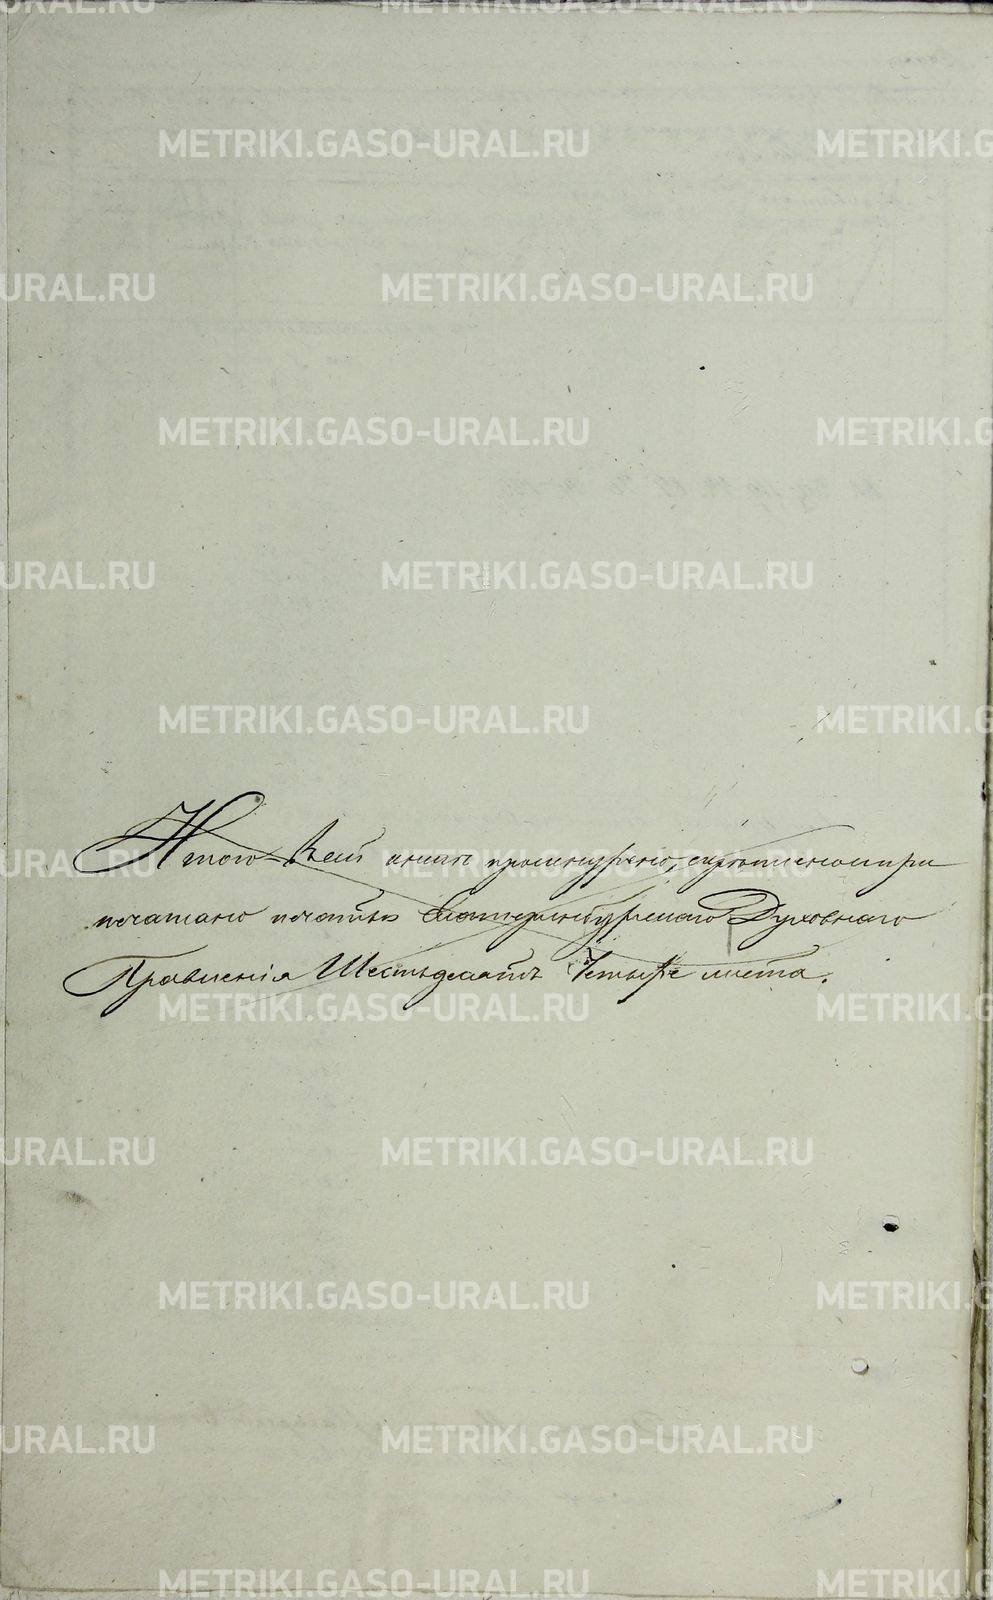 METRIKI.GASO-URAL.RU
METRIKI.GASO-URAL.RU METRIKI.G
URAL.RU METRIKI.GASO-URAL.RU
METRIKI.GASO-URAL.RU METRIKI.G
URAL.RU METRIKI.GASO-URAL.RU
METRIKI.GASO-URAL.RU METRIKI.G
Итого въ сей книгѣ прошнурено, скрѣплено и при
печатано печатью Екатеринбургскаго Духовнаго
Правленія Шестьдесятъ Четыре листа.
URAL.RU METRIKI.GASO-URAL.RU
METRIKI.GASO-URAL.RU METRIKI.G
URAL.RU METRIKI.GASO-URAL.RU
METRIKI.GASO-URAL.RU METRIKI.G
URAL.RU METRIKI.GASO-URAL.RU
METRIKI.GASO-URAL.RU METRIKI.G